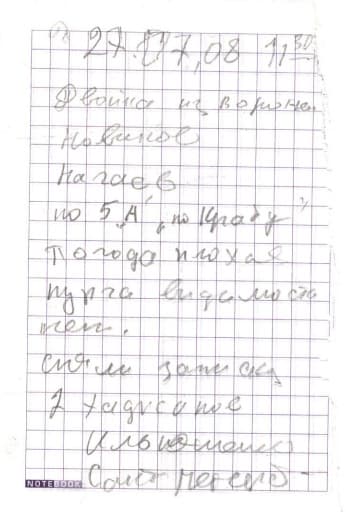 27.07,08 11 30
Двойка из Воронеж
Новиков
Нагаев
по 5 "А" "по Крабу"
Погода плохая
пурга видимости
нет.
сняли записку
Ильюшенко
Санкт Петерб-
NOTEBOOK